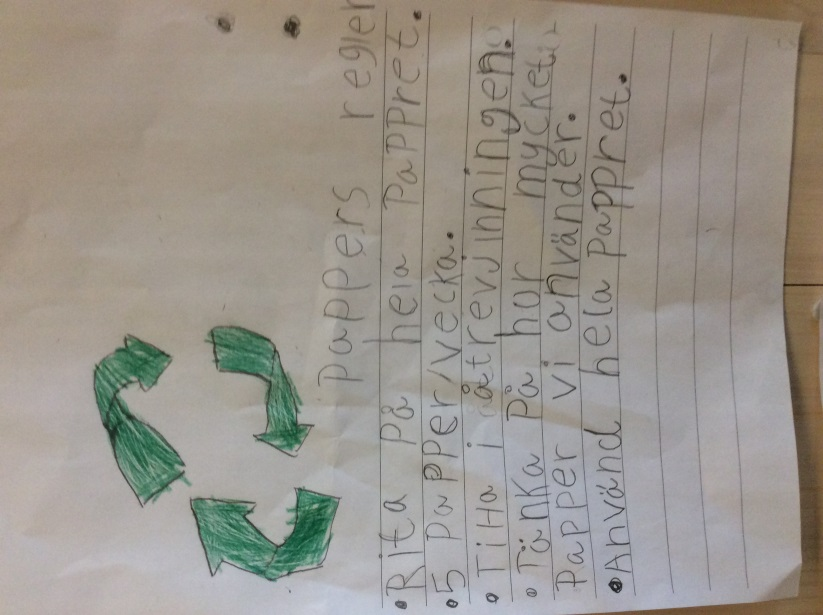 Pappers regler
• Rita på hela Pappret.
• 5 Papper/vecka.
• Titta i återvinningen.
• Tänka På hur mycket
Papper vi använder.
• Använd hela pappret.